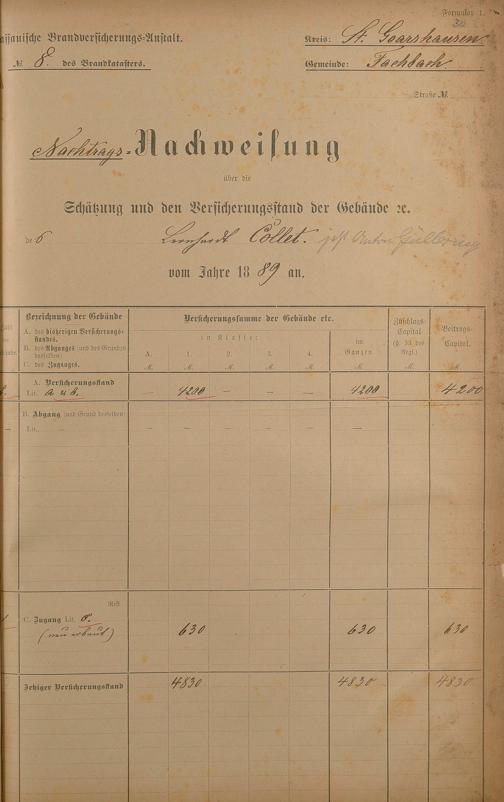 Formular 1.
assauische Brandversicherungs-Anstalt.
Kreis: St. Goarshausen
№ 8. des Brandkatasters.
Gemeinde: Fachbach
Straße №
Nachtrags-Nachweisung
über die
Schätzung und den Versicherungsstand der Gebäude ꝛc.
des Collet. jetzt Anton
vom Jahre 1889 an.
Bezeichnung der Gebäude
A. des bisherigen Versicherungsstandes.
B. des Abganges (und des Grundes desselben)
C. des Zuganges.
Versicherungssumme der Gebäude etc.
in Klasse:
A. 1. 2. 3. 4.
im Ganzen
Zuschlags-Capital
(§. 33 des Regl.)
Beitrags-Capital.
M. M. M. M. M. M. M. M.
A. Versicherungsstand
Lit. a u b. — 4200 — — — 4200 4200
B. Abgang (und Grund desselben)
Lit. — — — — — — —
Rest
C. Zugang Lit. c.
(neu erbaut) 630 630 630
Jetziger Versicherungsstand 4830 4830 4830